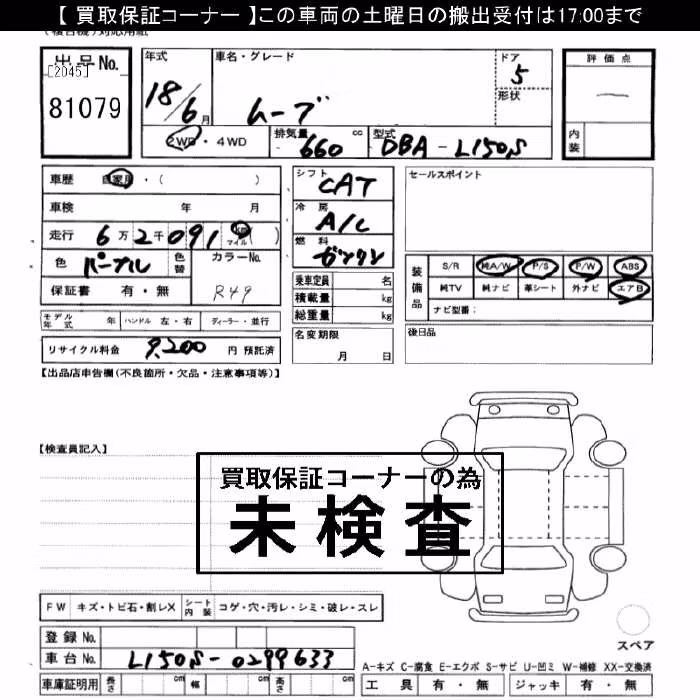 【 買取保証コーナー 】この車両の土曜日の搬出受付は17:00まで
(複合機)対応用紙
出品No.
[2045]
81079
年式
18/6月
車名・グレード
ムーブ
ドア
5
形状
評価点
―
内装
2WD・4WD
排気量
660 cc
型式
DBA-L150S
車歴 自家用・( )
車検 年 月
走行 6万2千091 km マイル ( )
色 パープル
色替
カラーNo.
R49
保証書 有・無
シフト
CAT
冷房
A/C
燃料
ガソリン
乗車定員 名
積載量 kg
総重量 kg
セールスポイント
装備品
S/R 純A/W P/S P/W ABS
純TV 純ナビ 革シート 外ナビ エアB
ナビ型番:
モデル年式 年 ハンドル 左・右 ディーラー・並行
名変期限
月 日
後日品
リサイクル料金 9,200 円 預託済
【出品店申告欄(不良箇所・欠品・注意事項等)】
【検査員記入】
買取保証コーナーの為
未検査
FW キズ・トビ石・割レX シート内装 コゲ・穴・汚レ・シミ・破レ・スレ
スペア
登録 No.
車台 No. L150S-0299633
A-キズ C-腐食 E-エクボ S-サビ U-凹ミ W-補修 XX-交換済
車庫証明用 長さ cm 幅 cm 高さ cm
工具 有・無 ジャッキ 有・無